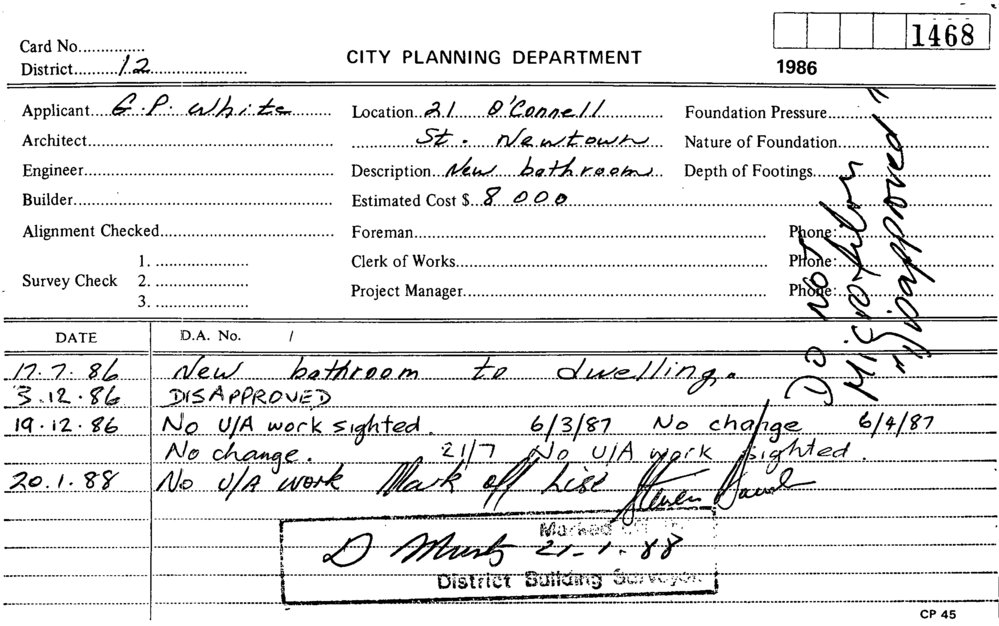 1468
1986
CITY PLANNING DEPARTMENT
Card No...............
District..........12......................
Applicant....G. P. White
Location..21 O'Connell
Foundation Pressure
Architect
St. Newtown
Nature of Foundation
Engineer
Description..New bathroom
Depth of Footings
Builder
Estimated Cost $..8 000
Alignment Checked
Foreman
Phone:
Survey Check 1.
2.
3.
Clerk of Works
Phone:
Project Manager
Phone:
Do not
Microfilm
"Disapproved"
DATE D.A. No. /
17.7.86 New bathroom to dwelling.
3.12.86 DISAPPROVED
19.12.86 No U/A work sighted. 6/3/87 No change 6/4/87
No change. 21/7 No U/A work sighted.
20.1.88 No U/A work Mark off List Steven
Marked Off by
D 21.1.88
District Building Surveyor.
CP 45